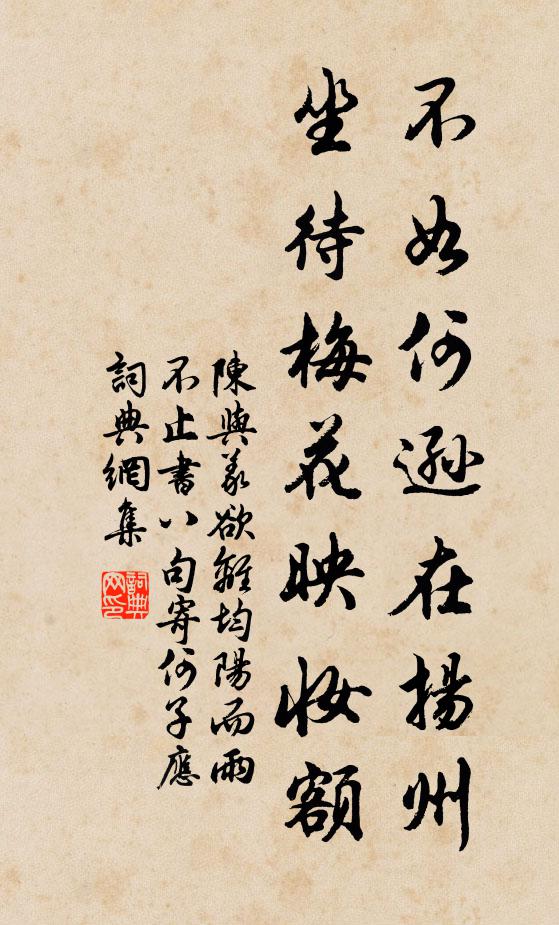 不如何遜在揚州
坐待梅花映妝額
陳與義欲離均陽而雨
不止書八句寄何子應
詞典網集
詞典網印